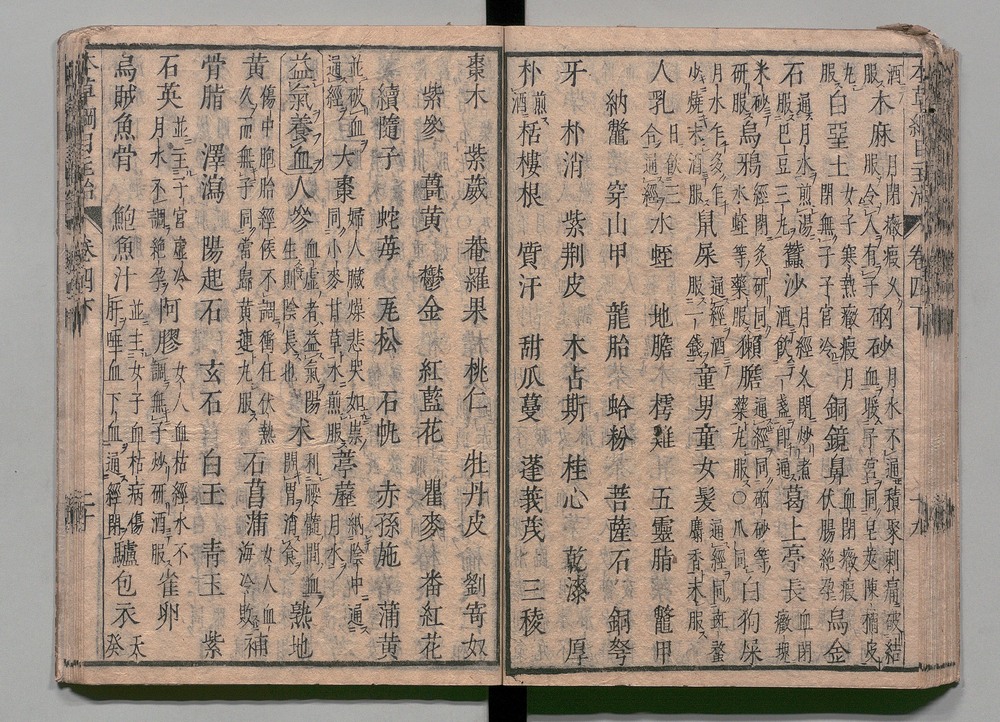 本草綱目主治 卷四下 十九
酒服 木麻 月閉癥瘕久服令人有子 硇砂 月水不通積聚刺痛破結血暖子宮同皂莢陳橘皮
丸服 白堊土 女子寒熱癥瘕月閉無子子宮冷 銅鏡鼻 血閉癥瘕伏腸絶孕 烏金
石 通月水煎湯服巴豆三丸 蠶沙 月經久閉炒煮酒飲一盞即通 葛上亭長 血閉癥塊
米炒研服 烏鴉 經閉炙研同水蛭等藥服 獺膽 通經同硇砂等藥丸服○爪同 白狗屎
月水乍多乍少燒末酒服 鼠屎 通經酒服一錢 童男童女髮 通經同斑蝥麝香末服
人乳 日飲三合通經 水蛭 地膽 樗雞 五靈脂 鼈甲
納鼈 穿山甲 龍胎 蛤粉 菩薩石 銅弩
牙 朴消 紫荆皮 木占斯 桂心 乾漆 厚
朴 煎酒 栝樓根 質汗 甜瓜蔓 蓬莪茂 三稜
棗木 紫葳 菴羅果 桃仁 牡丹皮 劉寄奴
紫參 薑黄 鬱金 紅藍花 瞿麥 番紅花
續隨子 蛇莓 瓦松 石帆 赤孫施 蒲黄
並破血通經 大棗 婦人臟燥悲哭如祟同小麥甘草水煎服 葶藶 納陰中通月水
益氣養血 人參 血虚者益氣陽生則陰長也 朮 利腰臍間血開胃消食 熟地
黄 傷中胞胎經候不調衝任伏熱久而無子同當歸黄連丸服 石菖蒲 女人血海冷敗 補
骨脂 澤瀉 陽起石 玄石 白玉 青玉 紫
石英 並主子宮虚冷月水不調絶孕 阿膠 女人血枯經水不調無子炒研酒服 雀卵
烏賊魚骨 鮑魚汁 並主女子血枯病傷肝唾血下血通經閉 驢包衣 天癸
本草綱目主治 卷四下 二十